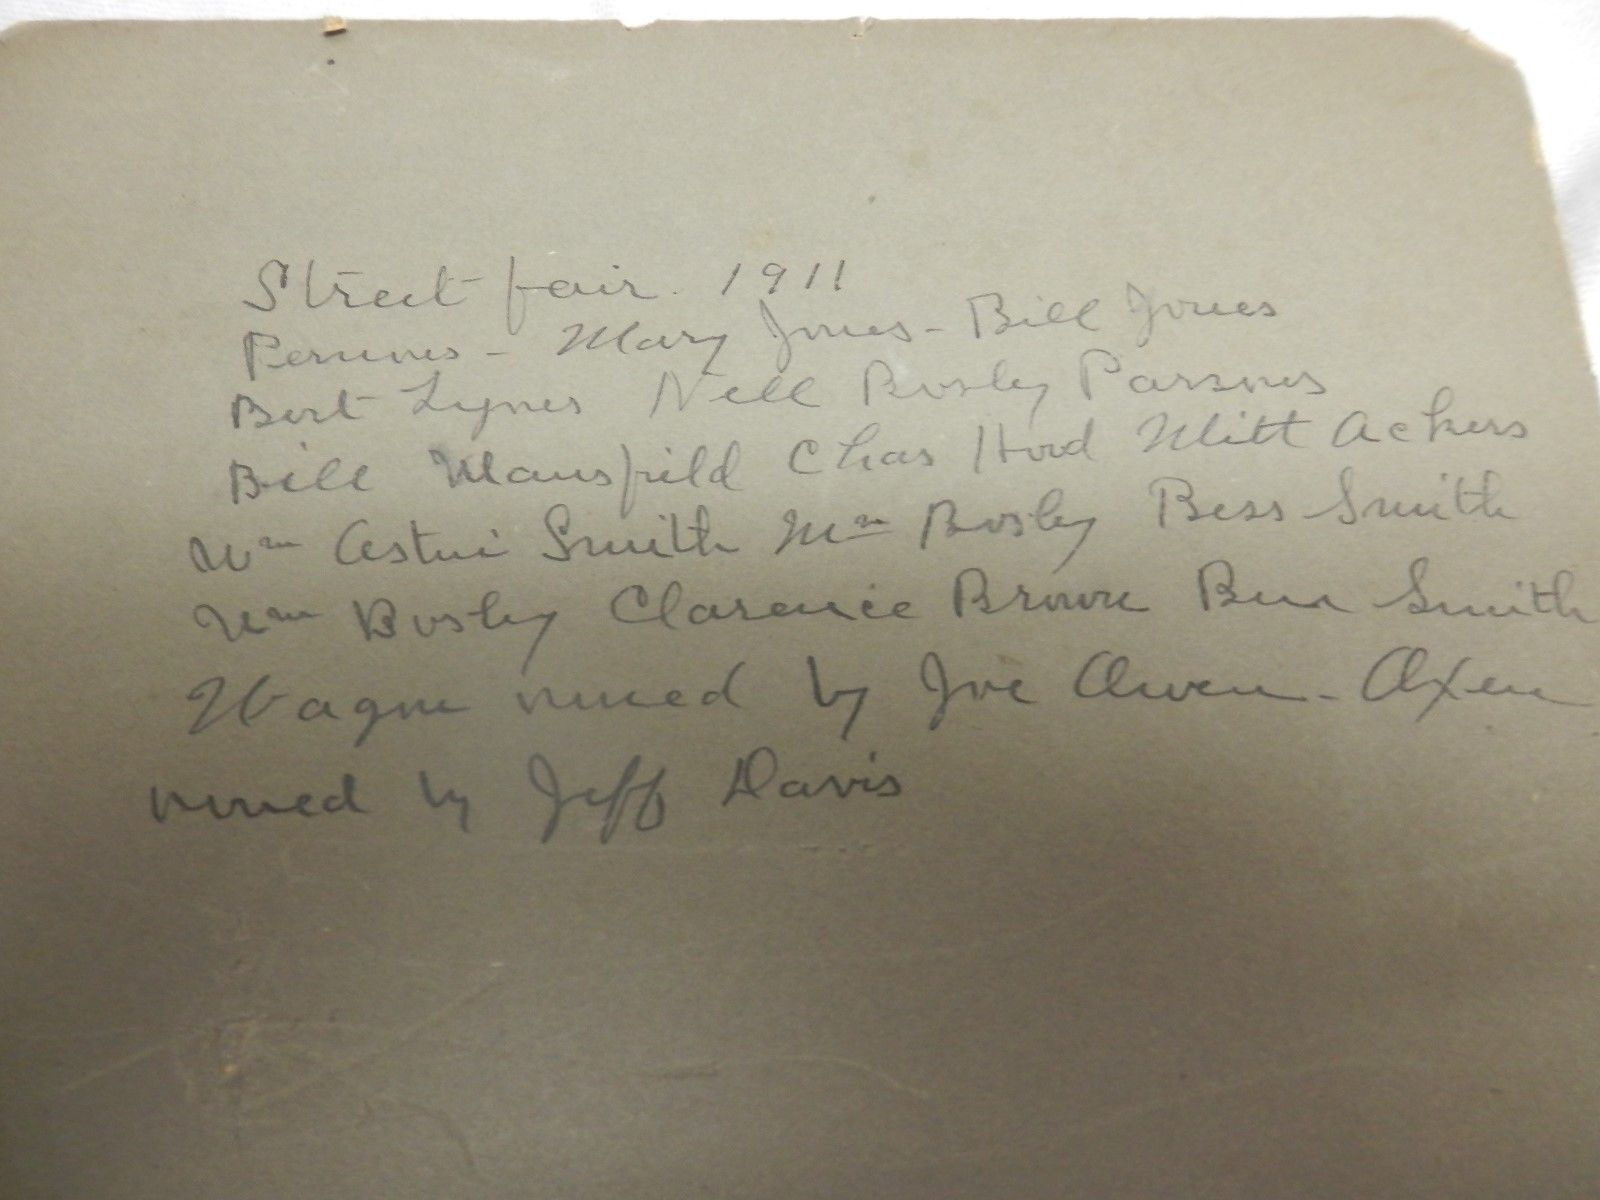 Street fair. 1911
Persons - Mary Jones - Bill Jones
Bert Lynes Nell Bosley Parsons
Bill Mansfield Chas Hood Milt Ackers
Wm Smith Mrs Bosley Bess Smith
Wm Bosley Clarence Brown Smith
Wagon owned by Joe Owen - Oxen
owned by Jeff Davis